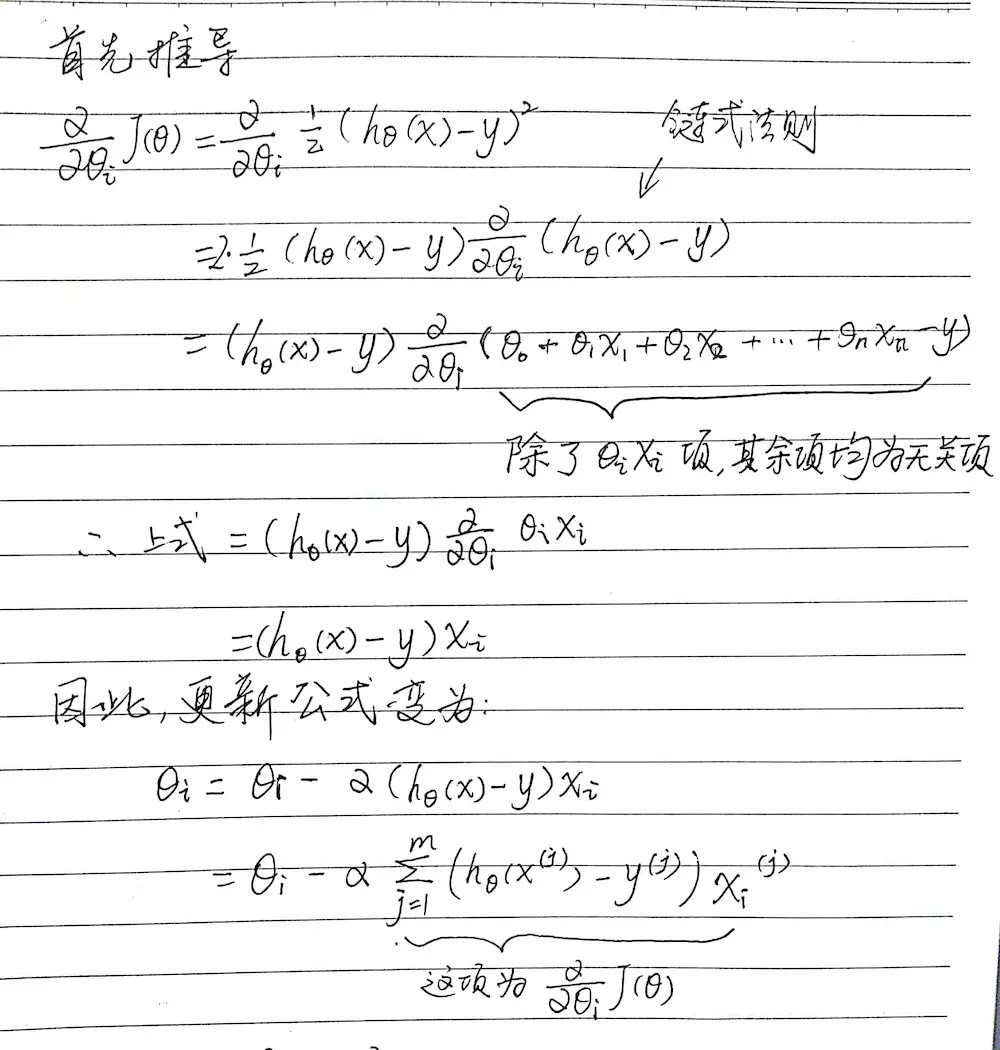 首先推导
∂/∂θᵢ J(θ) = ∂/∂θᵢ ½ (hθ(x) - y)²
链式法则
↙
= 2·½ (hθ(x) - y) ∂/∂θᵢ (hθ(x) - y)
= (hθ(x) - y) ∂/∂θᵢ (θ₀ + θ₁x₁ + θ₂x₂ + ⋯ + θₙxₙ - y)
除了 θᵢxᵢ 项, 其余项均为无关项
∴ 上式 = (hθ(x) - y) ∂/∂θᵢ θᵢxᵢ
= (hθ(x) - y) xᵢ
因此, 更新公式变为:
θᵢ = θᵢ - α (hθ(x) - y) xᵢ
= θᵢ - α ∑ⱼ₌₁ᵐ (hθ(x⁽ʲ⁾) - y⁽ʲ⁾) xᵢ⁽ʲ⁾
这项为 ∂/∂θᵢ J(θ)